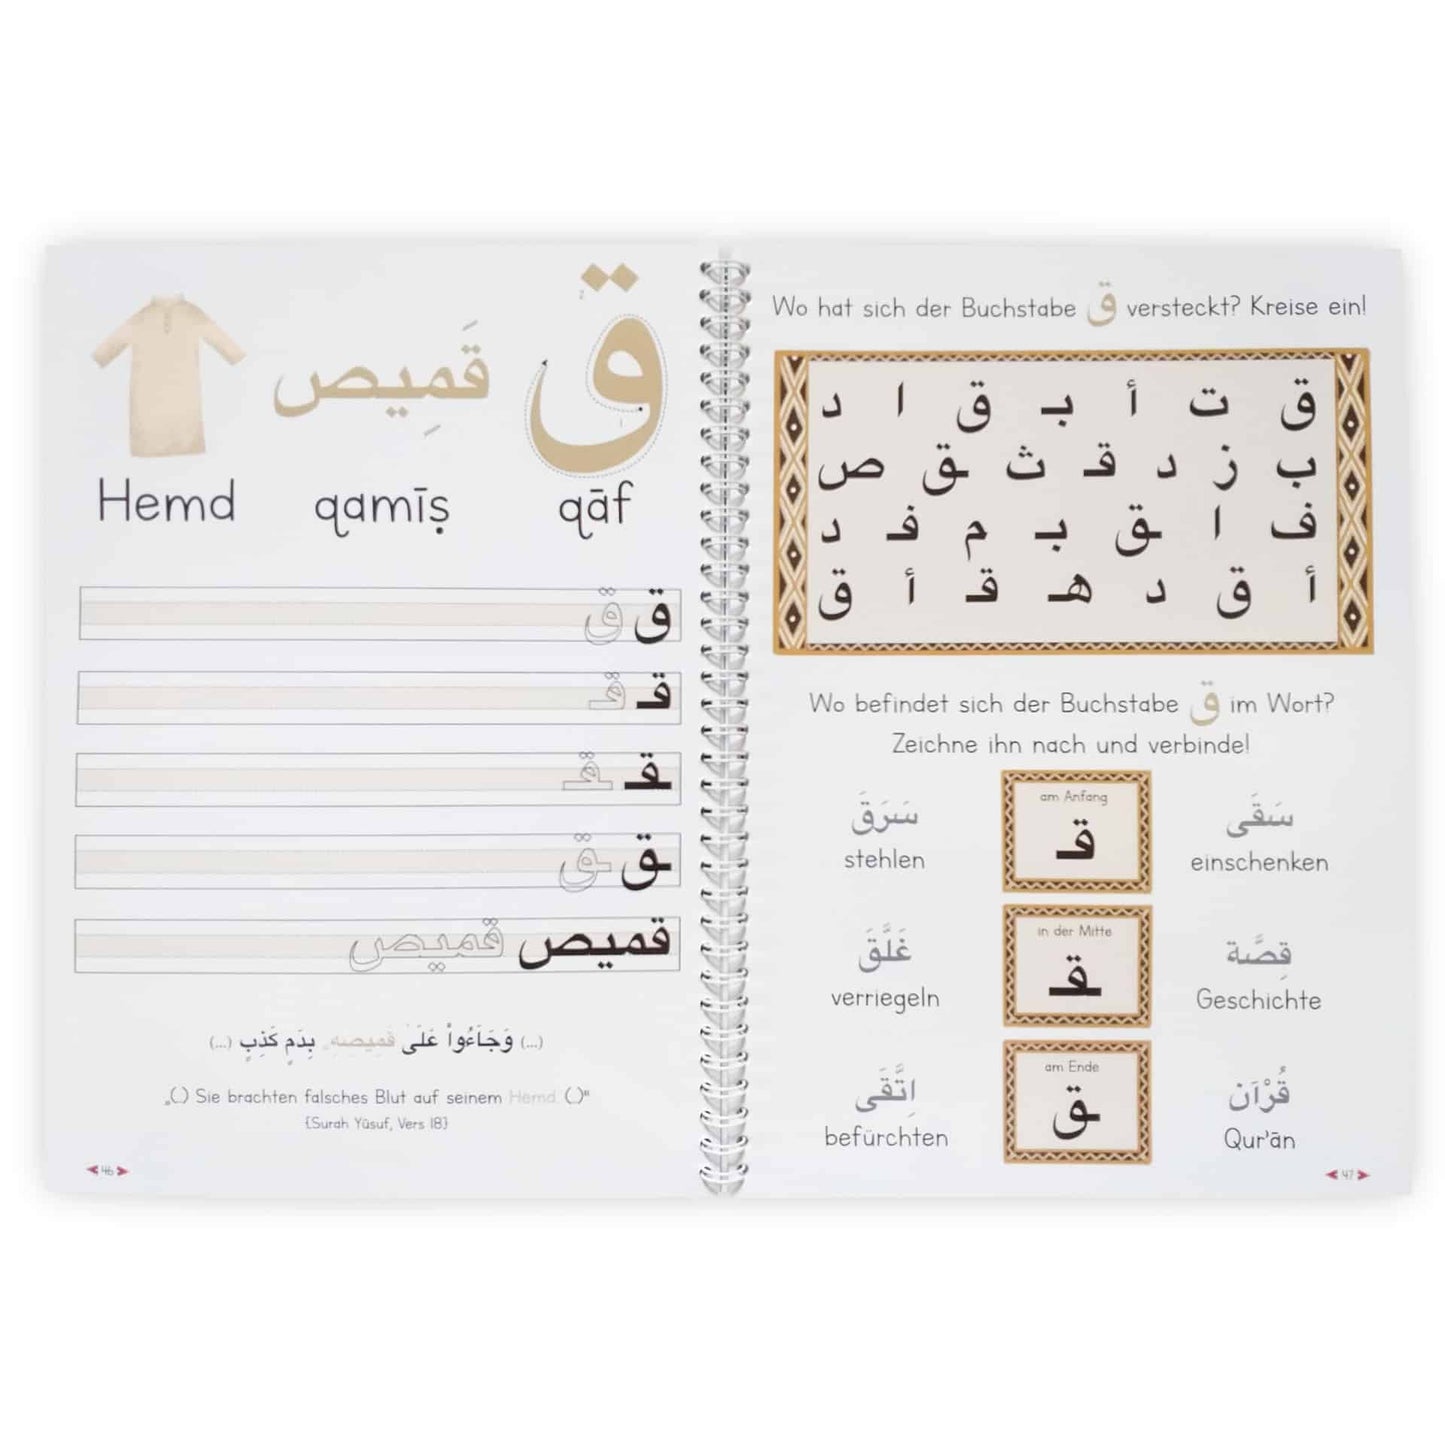 ق قَمِيص
Hemd qamīṣ qāf
ق ق
قـ قـ
ـقـ ـقـ
ـق ـق
قميص قميص
(...) وَجَآءُوا۟ عَلَىٰ قَمِيصِهِۦ بِدَمٍ كَذِبٍ (...)
„(..) Sie brachten falsches Blut auf seinem Hemd (..)“
{Surah Yūsuf, Vers 18}
46
Wo hat sich der Buchstabe ق versteckt? Kreise ein!
ق ت أ بـ ق ا د
ب ز د قـ ث ـق ص
ف ا ـق بـ م فـ د
أ ق د هـ قـ أ ق
Wo befindet sich der Buchstabe ق im Wort?
Zeichne ihn nach und verbinde!
سَقَى
einschenken
قِصَّة
Geschichte
قُرْآن
Qur'ān
am Anfang
قـ
in der Mitte
ـقـ
am Ende
ـق
سَرَقَ
stehlen
غَلَّقَ
verriegeln
اِتَّقَى
befürchten
47